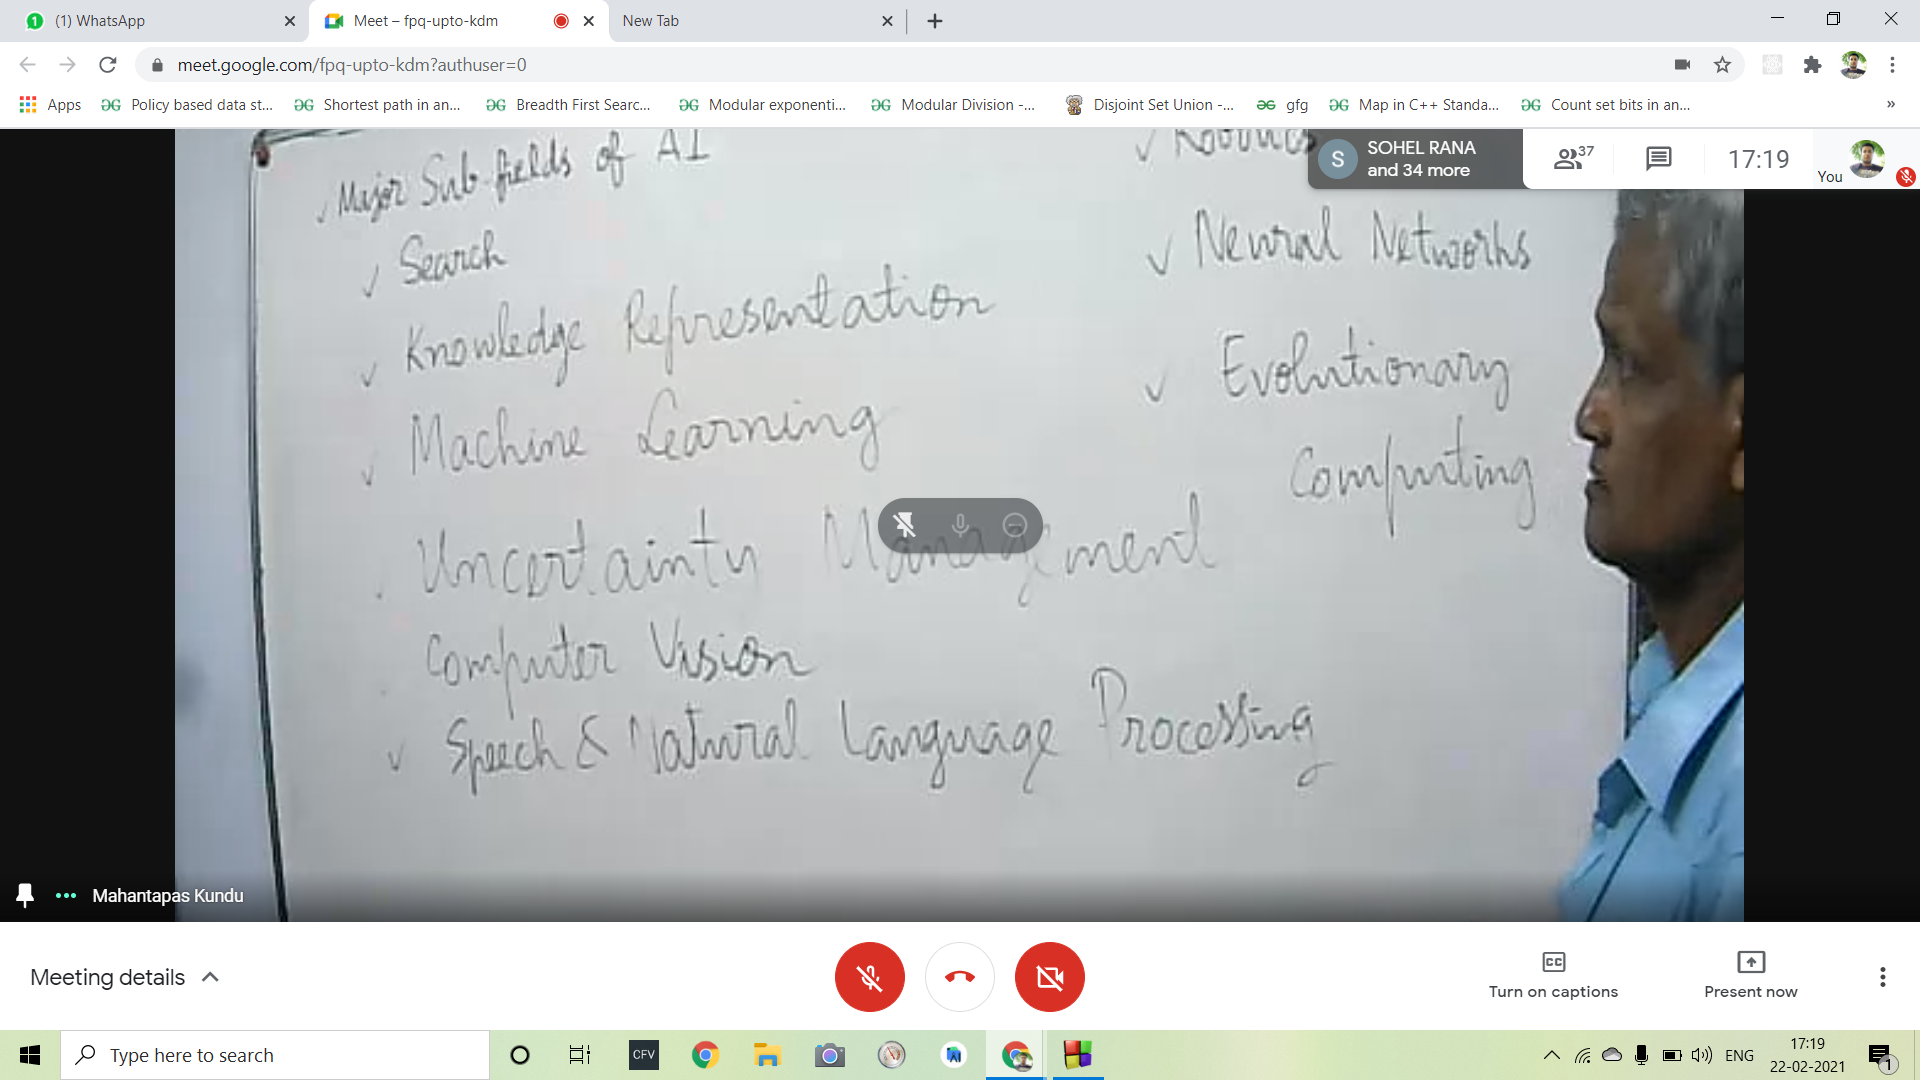 (1) WhatsApp
Meet – fpq-upto-kdm
New Tab
meet.google.com/fpq-upto-kdm?authuser=0
Apps
Policy based data st...
Shortest path in an...
Breadth First Searc...
Modular exponenti...
Modular Division -...
Disjoint Set Union -...
gfg
Map in C++ Standa...
Count set bits in an...
»
S
SOHEL RANA
and 34 more
37
17:19
You
Major Sub-fields of AI
Search
Knowledge Representation
Machine Learning
Uncertainty Management
Computer Vision
Speech & Natural Language Processing
Neural Networks
Evolutionary
Computing
Mahantapas Kundu
Meeting details
CC
Turn on captions
Present now
Type here to search
CFV
ENG
17:19
22-02-2021
1